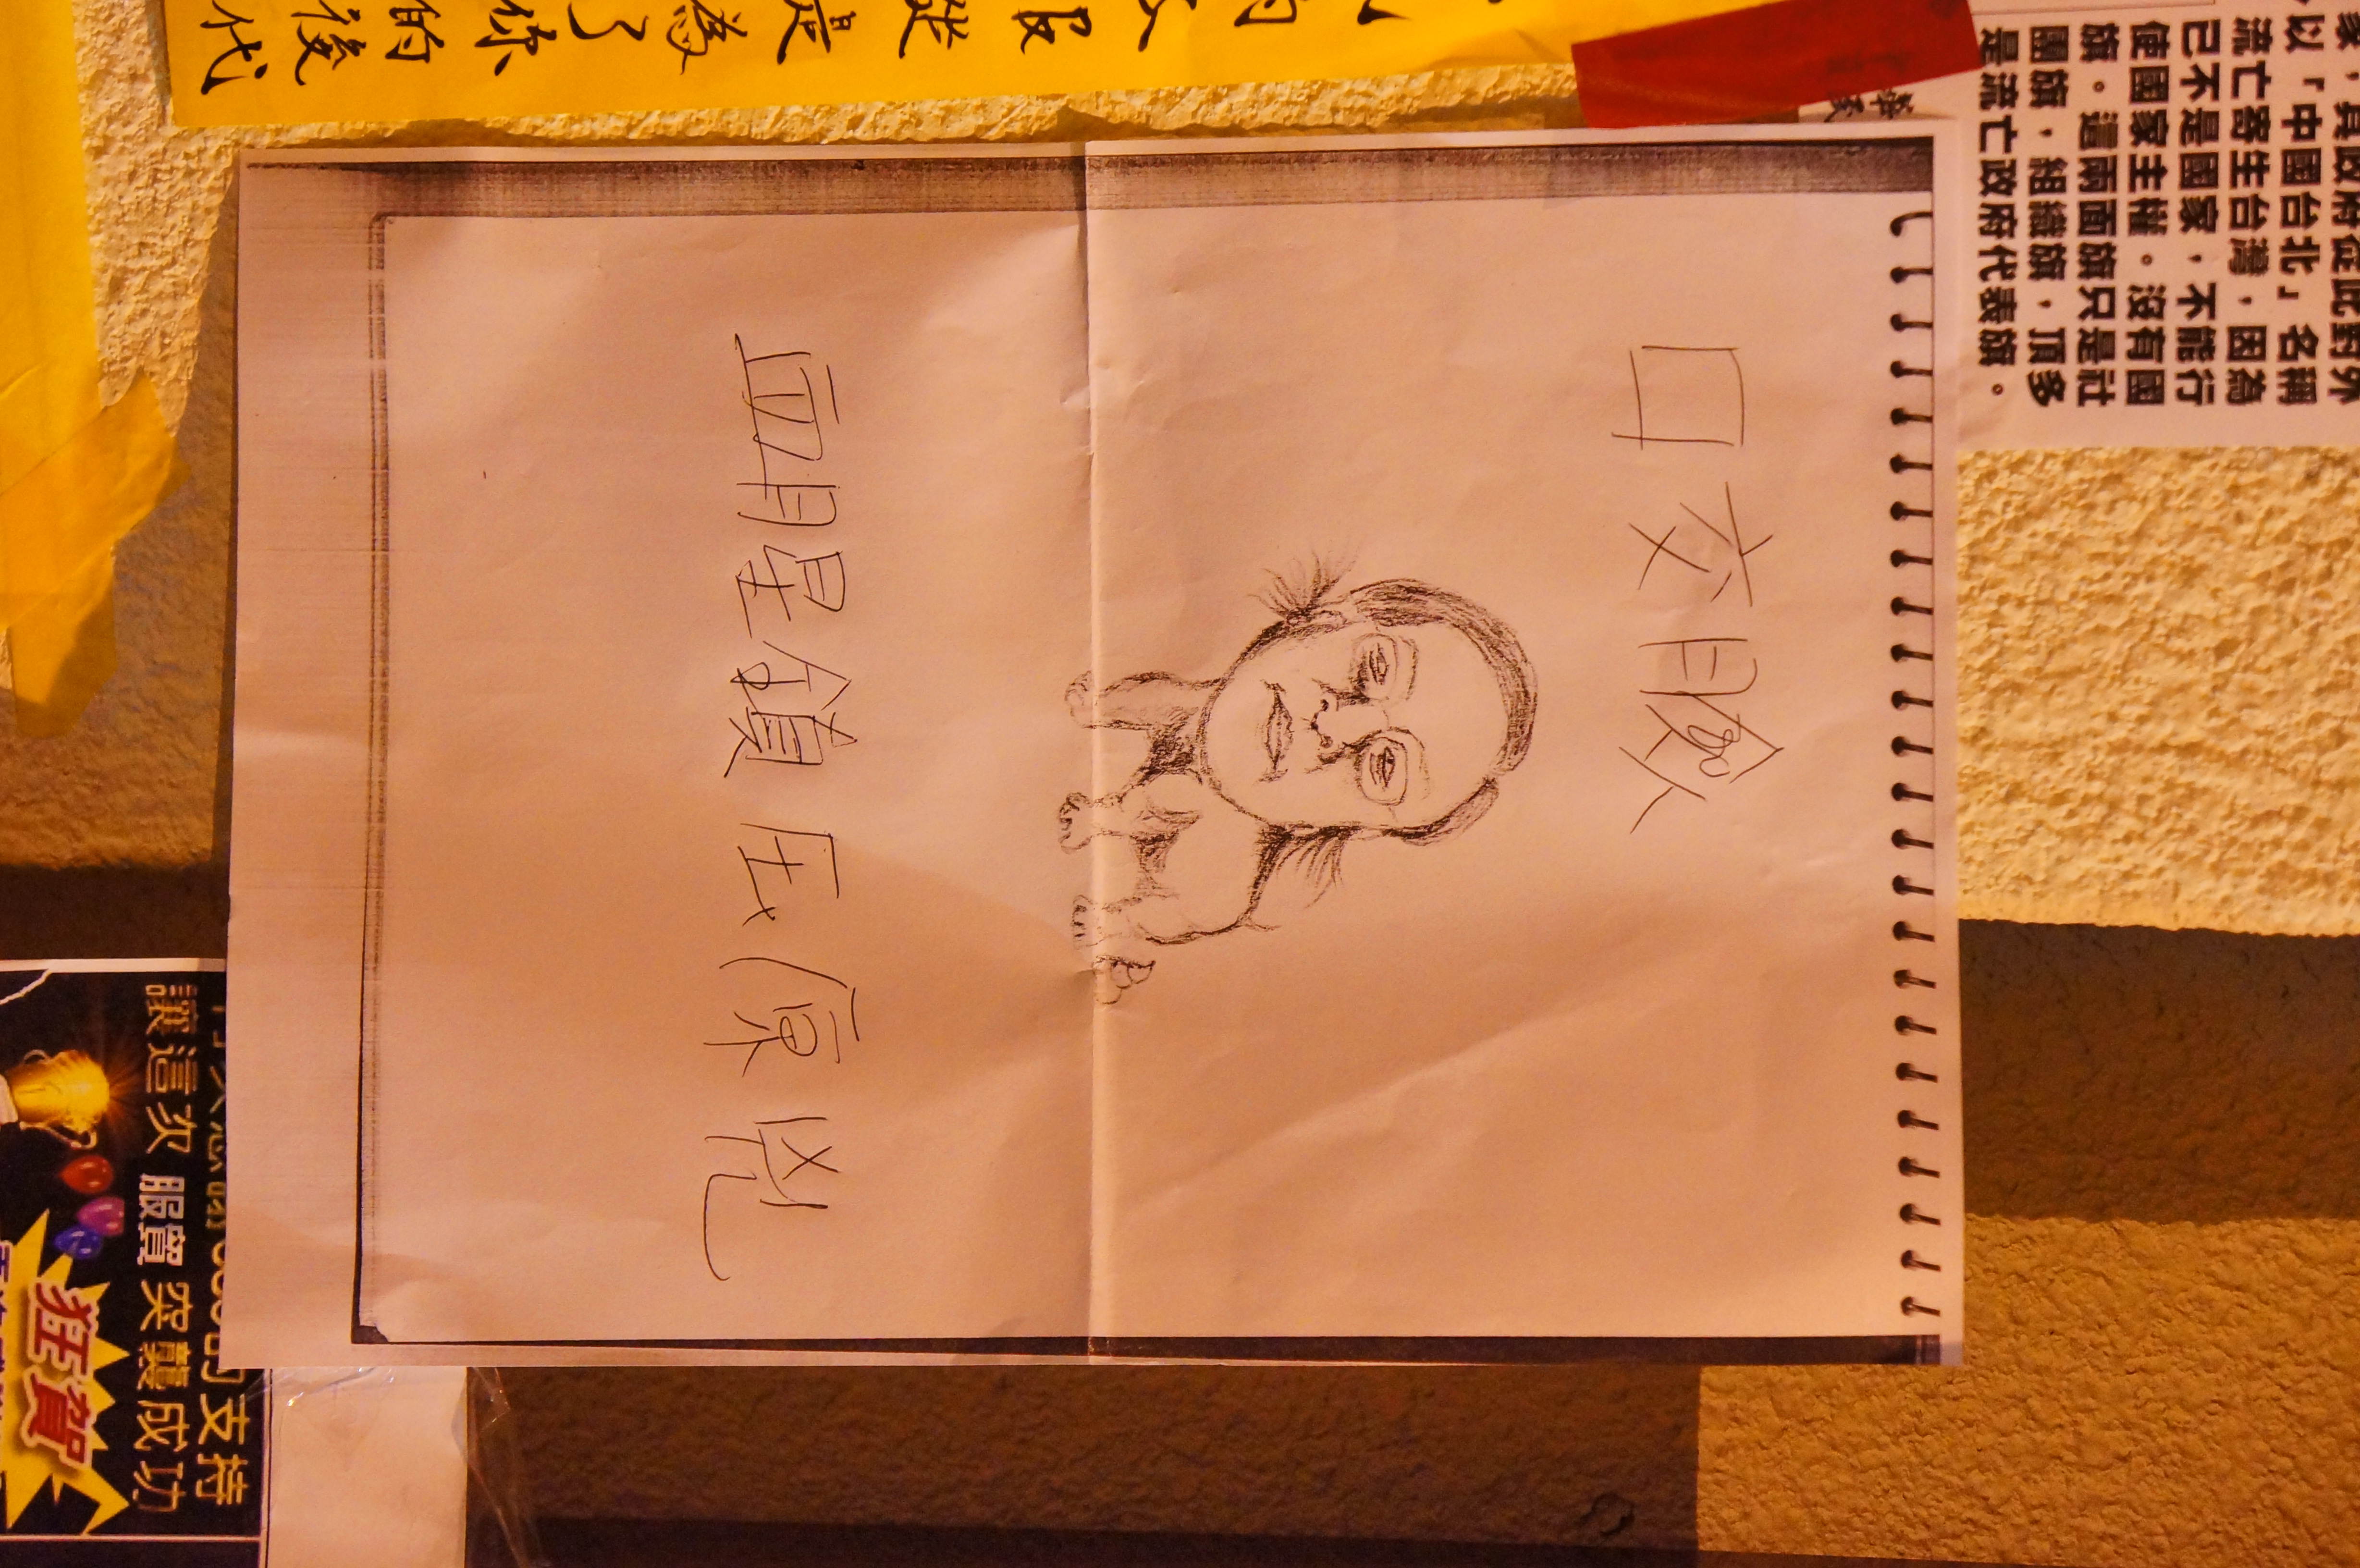 服從是為了你的後代
家，其政府從此對外
以「中國台北」名稱
流亡寄生台灣，因為
已不是國家，不能行
使國家主權。沒有國
旗。這兩面旗只是社
團旗，組織旗，頂多
是流亡政府代表旗。
口交臉
血腥鎮压原兇
的支持
讓這次 服貿 突襲成功
狂賀